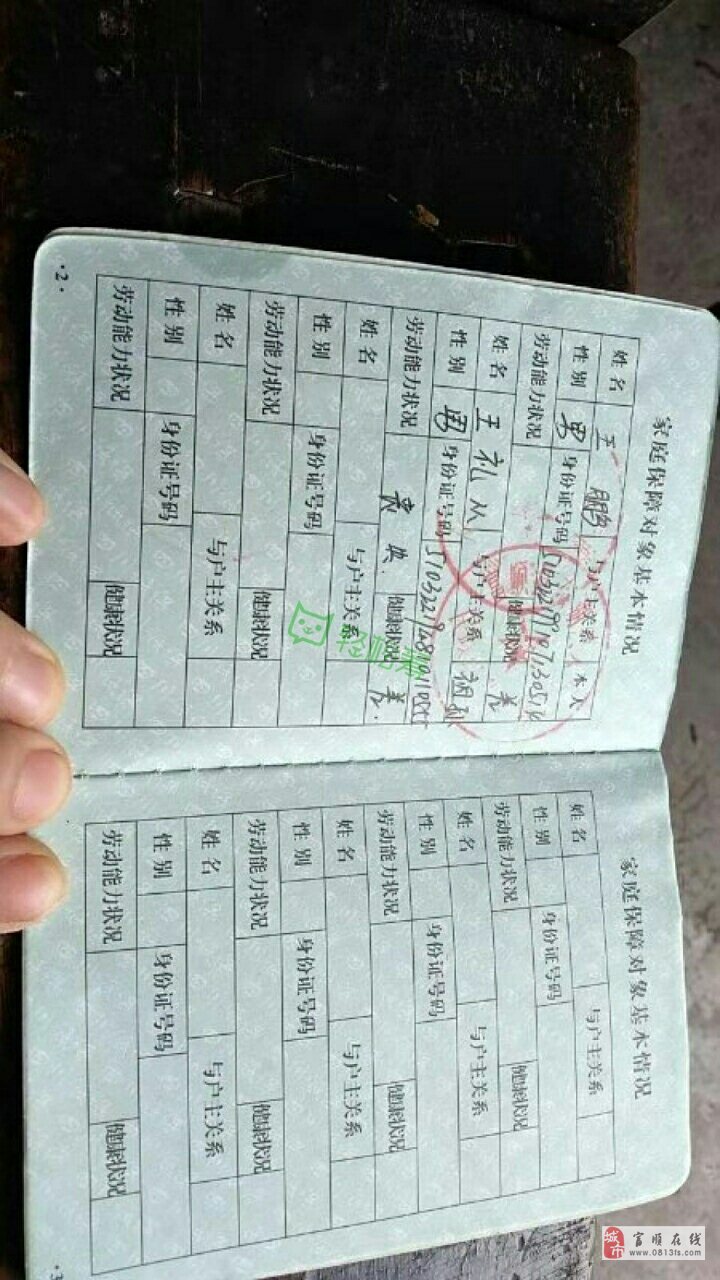 家庭保障对象基本情况
姓名 王鹏 与户主关系 本人
性别 男 身份证号码
劳动能力状况 健康状况 差
姓名 王礼从 与户主关系
性别 男 身份证号码
劳动能力状况 健康状况 差.
姓名 与户主关系
性别 身份证号码
劳动能力状况 健康状况
姓名 与户主关系
性别 身份证号码
劳动能力状况 健康状况
·2·
家庭保障对象基本情况
姓名 与户主关系
性别 身份证号码
劳动能力状况 健康状况
姓名 与户主关系
性别 身份证号码
劳动能力状况 健康状况
姓名 与户主关系
性别 身份证号码
劳动能力状况 健康状况
姓名 与户主关系
性别 身份证号码
劳动能力状况 健康状况
·3
轻松筹
城市 富顺在线
www.0813fs.com